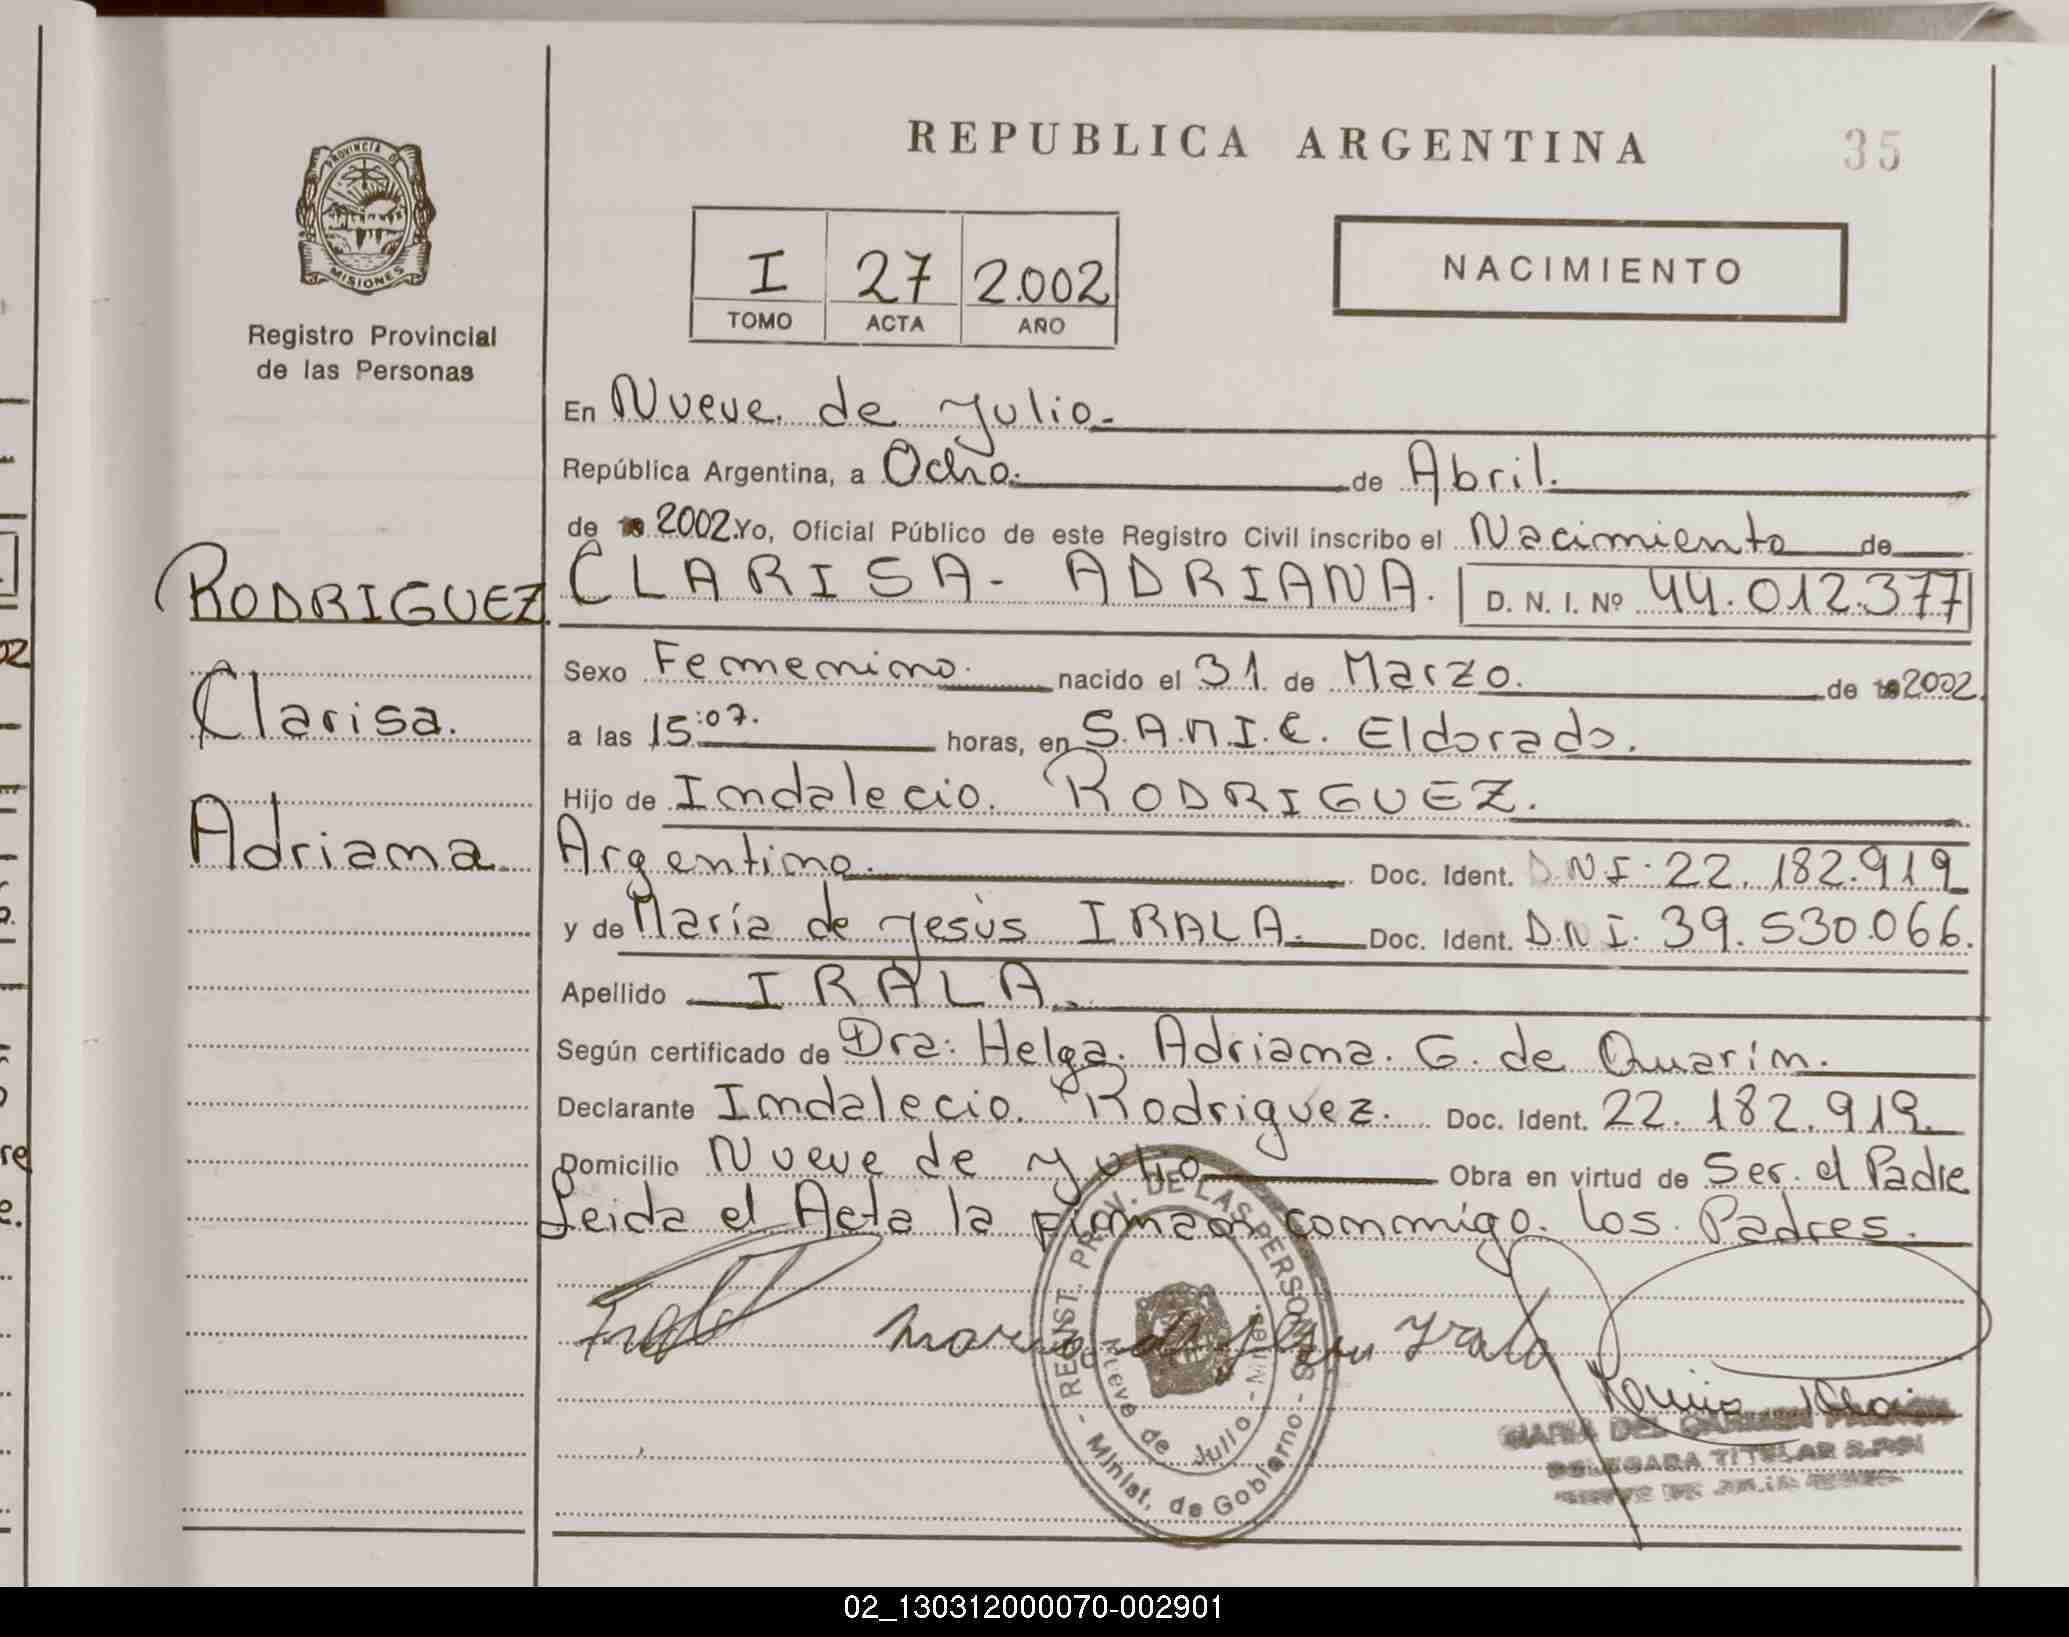 REPUBLICA ARGENTINA
35
PROVINCIA DE
MISIONES
Registro Provincial
de las Personas
I 27 2.002
TOMO ACTA AÑO
NACIMIENTO
En Nueve de Julio.
República Argentina, a Ocho. de Abril.
de 2002. Yo, Oficial Público de este Registro Civil inscribo el Nacimiento de
RODRIGUEZ
Clarisa.
Adriana
CLARISA - ADRIANA. D. N. I. Nº 44.012.377
Sexo Femenino. nacido el 31 de Marzo. de 2002.
a las 15:07. horas, en S.A.M.I.C. Eldorado.
Hijo de Indalecio. RODRIGUEZ.
Argentino. Doc. Ident. D.N.I. 22.182.919
y de María de Jesús IRALA. Doc. Ident. D.N.I. 39.530.066.
Apellido IRALA.
Según certificado de Dra: Helga. Adriana. G. de Quarin.
Declarante Indalecio. Rodriguez. Doc. Ident. 22.182.919.
Domicilio Nueve de Julio Obra en virtud de Ser el Padre
Leida el Acta la firman conmigo. los. Padres.
REGIST. PROV. DE LAS PERSONAS - Minist. de Gobierno -
Nueve de Julio - Mnes.
Maria de Jesu Irala
MARIA DEL
DELEGADA TITULAR
02_130312000070-002901